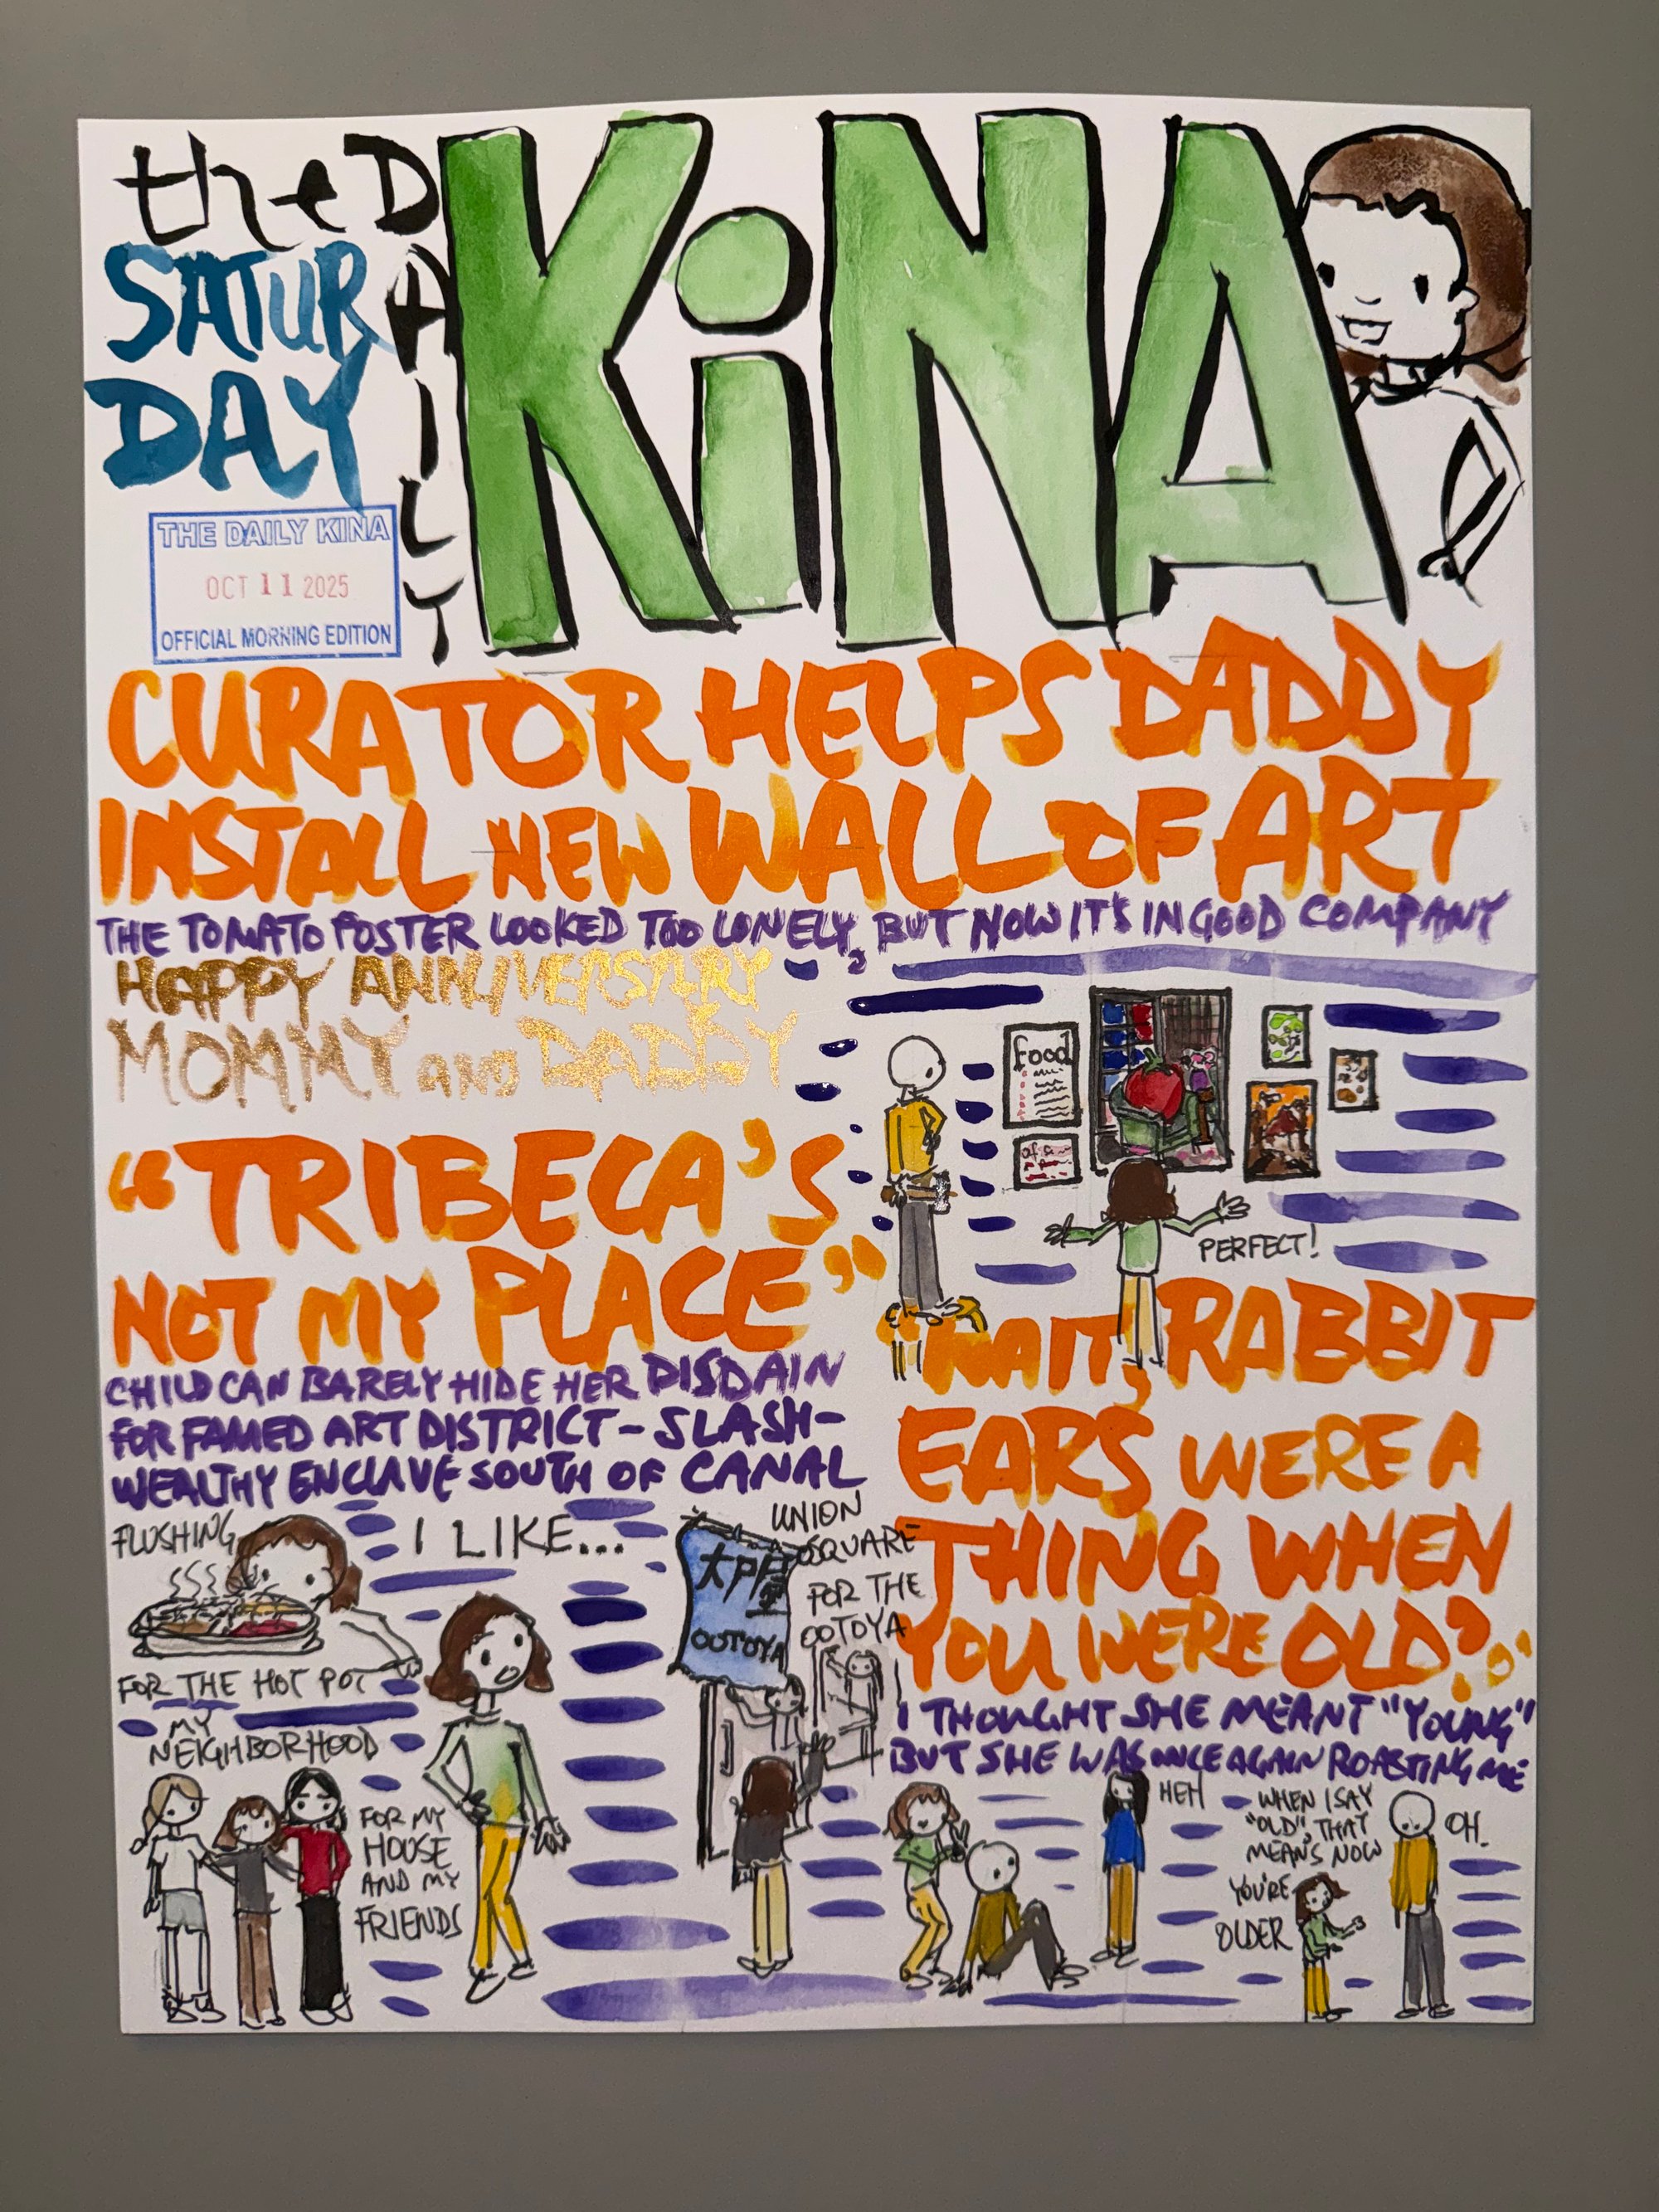 the DAILY
KiNA
SATUR
DAY
THE DAILY KINA
OCT 11 2025
OFFICIAL MORNING EDITION
CURATOR HELPS DADDY
INSTALL NEW WALL OF ART
THE TOMATO POSTER LOOKED TOO LONELY, BUT NOW IT'S IN GOOD COMPANY
HAPPY ANNIVERSARY
MOMMY AND DADDY
food
PERFECT!
"TRIBECA'S
NOT MY PLACE"
CHILD CAN BARELY HIDE HER DISDAIN
FOR FAMED ART DISTRICT-SLASH-
WEALTHY ENCLAVE SOUTH OF CANAL
FLUSHING
FOR THE HOT POT
I LIKE...
UNION
SQUARE
FOR THE
OOTOYA
大戸屋
OOTOYA
MY
NEIGHBORHOOD
FOR MY
HOUSE
AND MY
FRIENDS
"WAIT, RABBIT
EARS WERE A
THING WHEN
YOU WERE OLD?"
I THOUGHT SHE MEANT "YOUNG"
BUT SHE WAS ONCE AGAIN ROASTING ME
HEH
WHEN I SAY
"OLD", THAT
MEANS NOW
YOU'RE
OLDER
OH.